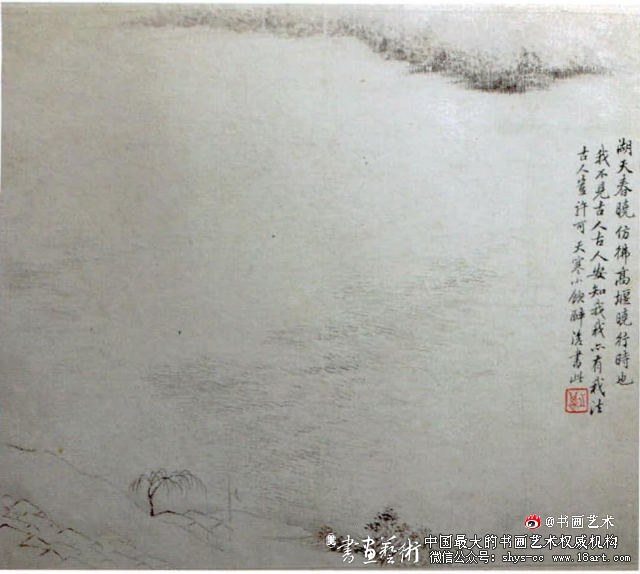 湖天春曉仿彿高堰曉行時也
我不見古人古人安知我我亦有我法
古人豈許可天寒小飲醉後書此
@书画艺术
書畫藝術
中国最大的书画艺术权威机构
微信公众号：shys-cc www.18art.com